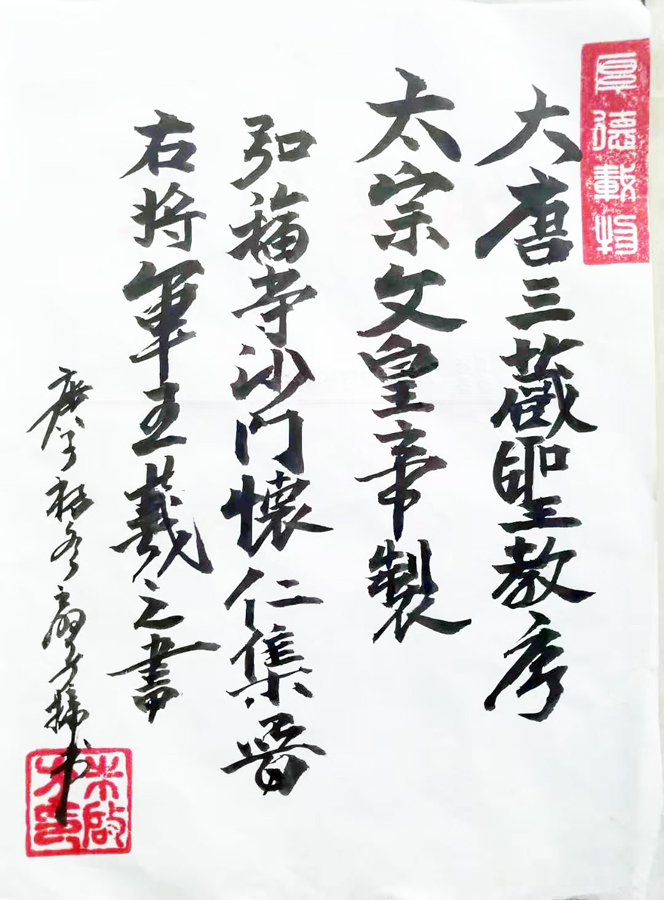 厚德載物
大唐三藏聖教序
太宗文皇帝製
弘福寺沙門懷仁集晉
右將軍王羲之書
庚子 冬 书